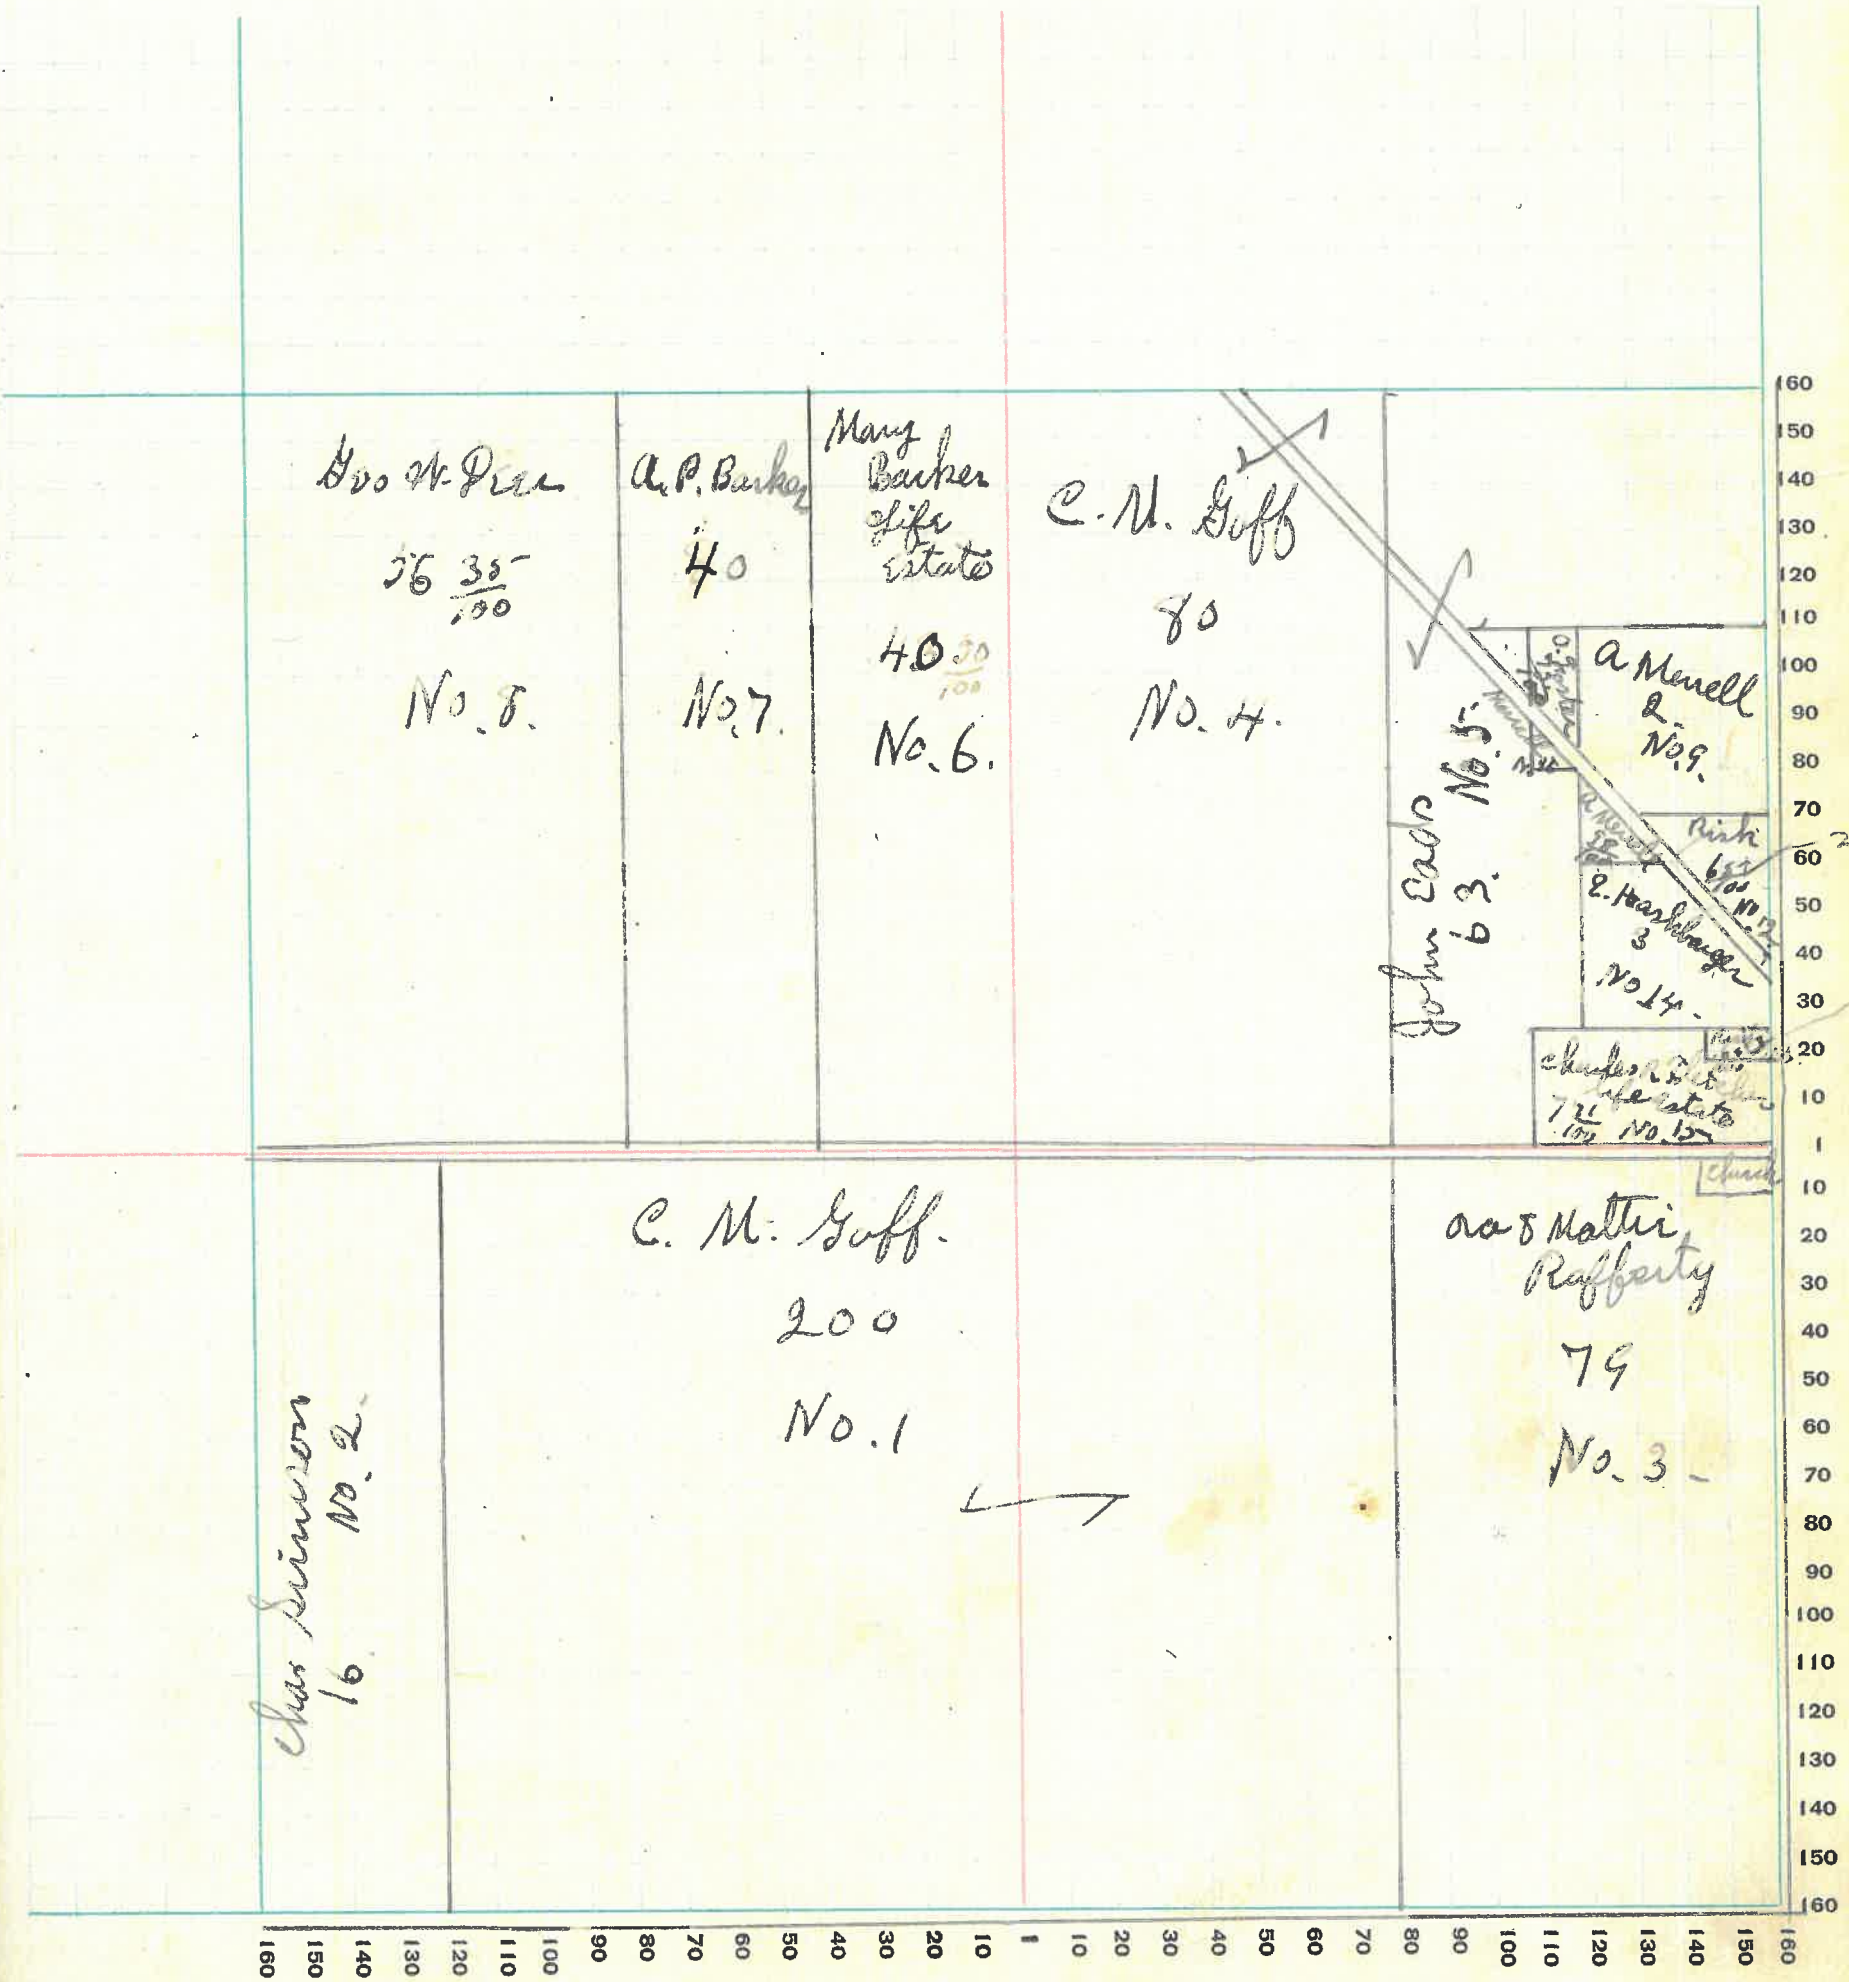 Geo W. Deer
56 35/100
No. 8.
A. P. Barker
40
No. 7.
Mary
Barker
Life
Estate
40 50/100
No. 6.
C. M. Goff
80
No. 4.
John Eads
63. No. 5.
A Merrell
2.
No. 9.
O. Foster
A Merrell
99/100
Risk
6
100
No 12
E. Harshbarger
3
No 14 -
Charles
Life Estate
7 21/100 No. 15
Church
C. M. Goff.
200
No. 1
Chas Simison
16 No. 2.
Mattie
Rafferty
79
No. 3 -
160
150
140
130
120
110
100
90
80
70
60
50
40
30
20
10
1
10
20
30
40
50
60
70
80
90
100
110
120
130
140
150
160
160 150 140 130 120 110 100 90 80 70 60 50 40 30 20 10 1 10 20 30 40 50 60 70 80 90 100 110 120 130 140 150 160